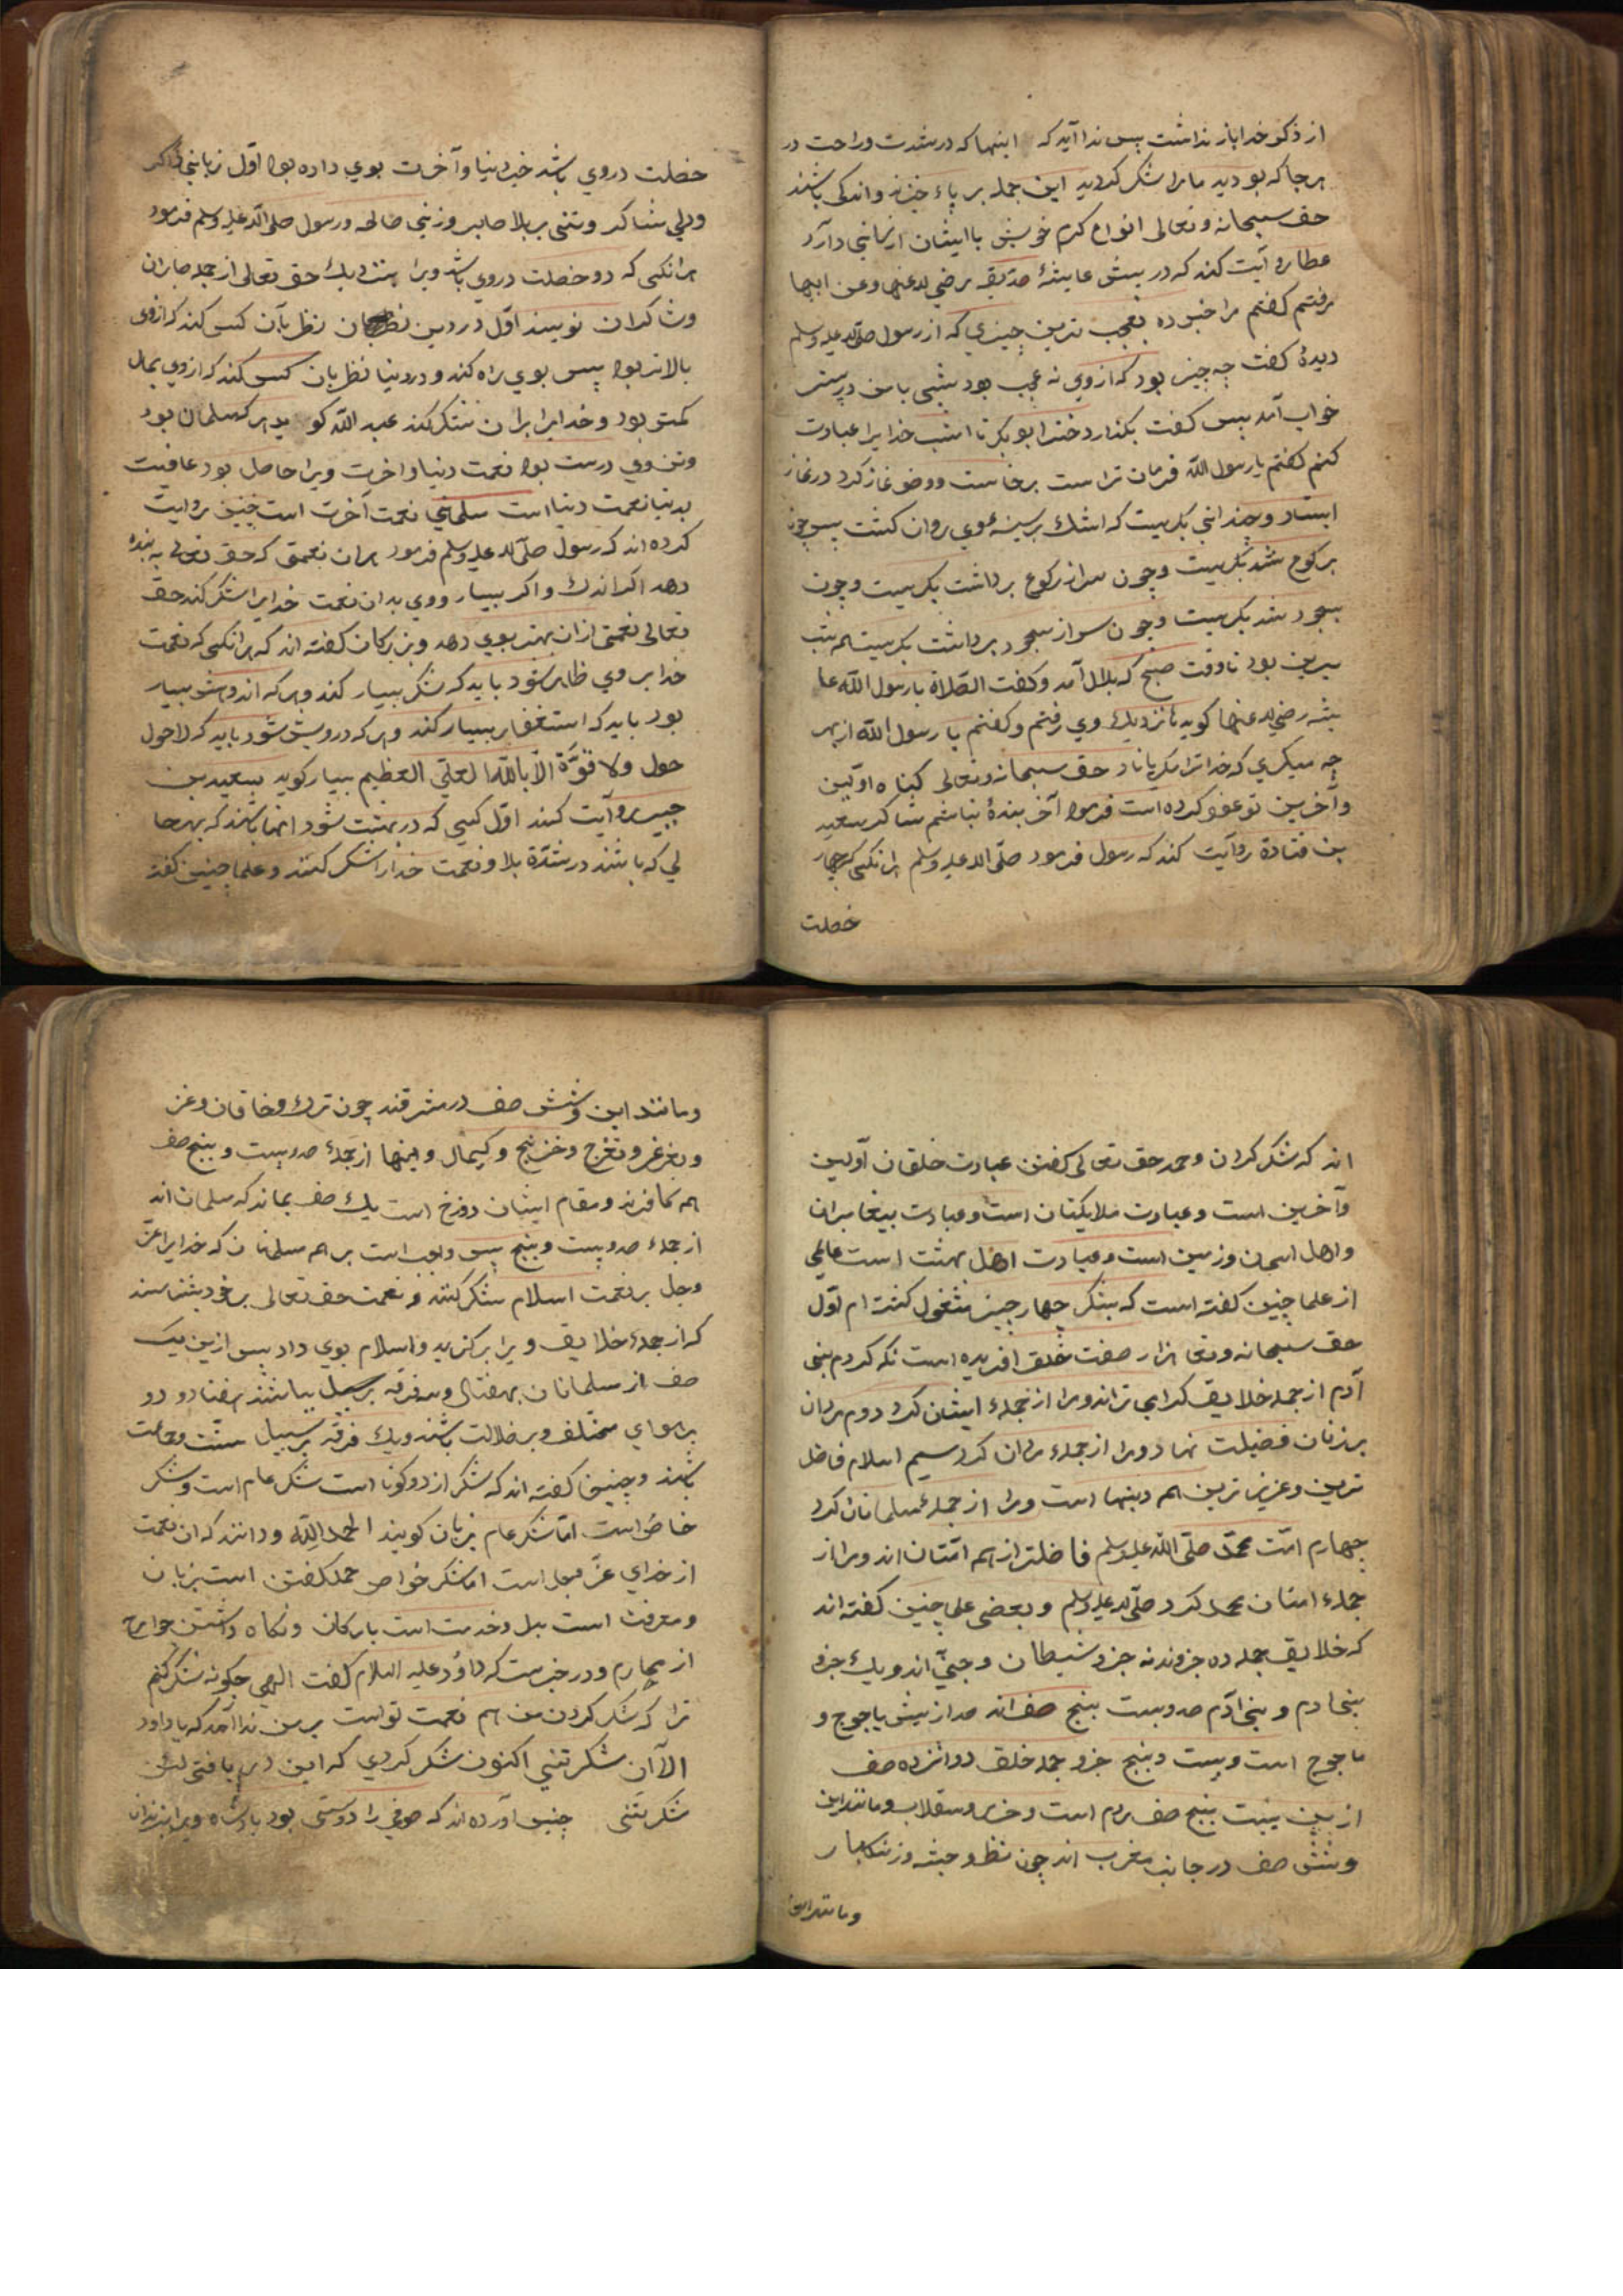 از ذکر خدا باز نداشت پس ندا آید که اینها که در شدت و راحت در
هر جا که بودید ما را شکر کردید این جمله بر پاء خیزند و اندکی باشند
حق سبحانه و تعالی انواع کرم خویش با ایشان ارزانی دارد
عطا روایت کند که در پیش عایشهٔ صدّیقه رضی الله عنها وعن ابیها
رفتم کفتم مرا خبر ده بعجب ترین چیزي که از رسول صلی الله علیه وسلم
دیدهٔ کفت چه چیز بود که از وي نه عجب بود شبی با من در بستر
خواب آمد پس کفت بکذار دختر ابو بکر تا امشب خدایرا عبادت
کنم کفتم یا رسول الله فرمان تراست برخاست و وضو نماز کرد در نماز
ایستاد و چندانی بکریست که اشك بر سینهٔ وي روان کشت پس چون
برکوع شد بکریست وچون سر از رکوع برداشت بکریست وچون
بسجود شد بکریست وچون سر از سجود برداشت بکریست همه شب
برین بود تا وقت صبح که بلال آمد وکفت الصّلاة یا رسول الله عا
یشه رضی الله عنها کوید نزدیك وي رفتم وکفتم یا رسول الله از بهر
چه میکریي که خدا ترا مکریاناد حق سبحانه وتعالی کناه اوّلین
وآخرین تو عفو کرده است فرمود آخر بندهٔ نباشم شاکر سعید
بن قتادة روایت کند که رسول فرمود صلّی الله علیه وسلم هر انکسی که چهار
خصلت
خصلت در وي باشد خیر دنیا وآخرت بوي داده بود اوّل زبانی ذاکر
ودلي شاکر وتنی بر بلا صابر وزنی صالحه ورسول صلی الله علیه وسلم فرمود
هر انکسی که دو خصلت در وي باشد ویرا بنزدیك حق تعالی از جمله صابران
وشاکران نویسند اوّل در دین نظر بآن کس کند که از وي
بالاتر بود پس بوي راه کند و در دنیا نظر بان کس کند که از وي بمال
کمتر بود وخدایرا بران شکر کند عبد الله کوید هر که مسلمان بود
وتن وي درست بود نعمت دنیا واخرت ویرا حاصل بود عافیت
بدنیا نعمت دنیا است مسلمانی نعمت آخرت است چنین روایت
کرده اند که رسول صلّی الله علیه وسلم فرمود هر ان نعمتی که حق تعالی به بنده
دهد اکر اندك واکر بسیار ووي بدان نعمت خدایرا شکر کند حق
تعالی نعمتی از ان بهتر بوي دهد وبزرکان کفته اند که هر انکسی که نعمت
خدا بر وي ظاهر شود باید که شکر بسیار کند وهر که اندوهش بسیار
بود باید که استغفار بسیار کند وهر که درویش شود باید که لاحول
حول ولا قوّة الّا بالله العلیّ العظیم بسیار کوید سعید بن
جبیر روآیت کند اوّل کسی که در بهشت شود انها باشند که بهر حا
لي که باشند در شدّة بلا ونعمت خدا را شکر کنند وعلما چنین کفته
اند که شکر کردن وحمد حق تعالی کفتن عبادت خلقان اوّلین
وآخرین است وعبادت ملایکتان است وعبادت پیغامبران
واهل اسمان وزمین است وعبادت اهل بهشت است عالمی
از علما چنین کفته است که بشکر چهار چیز مشغول کشته ام اوّل
حق سبحانه وتعا هزار صفت خلق افریده است نکه کردم بنی
آدم از جمله خلایق کرامی تراند ومرا از جملهٔ ایشان کرد دوم مردان
بر زنان فضیلت نهاد ومرا از جملهٔ مردان کرد سیم اسلام فاضل
ترین وعزیز ترین همه دینها است ومرا از جملهٔ مسلمانان کرد
چهارم امّت محمّد صلّی الله علیه وسلم فاضلتر از همه امّتان اند ومرا از
جملهٔ امتان محمد کرد صلّی الله علیه وسلم وبعضی علما چنین کفته اند
که خلایق جمله ده جزوند نه جزو شیطان وجنّی اند ویك جزو
بنی ادم وبنی ادّم صد وبیست پنج صف اند صد از پیش یاجوج و
ماجوج است وبیست وپنج جزو جمله خلق دوانزده صف
از بین بیست پنج صف روم است وخزر وسقلاب ومانند این
وشش صف در جانب مغرب اند چون نظ وحبشه وزنکبار
ومانند این
ومانند این وشش صف در مشرقند چون ترك وخاقان وغز
وتغزغز وتغرج وخرلج وکیمال واینها از جملهٔ صد وبیست وپنج صف
همه کافرند ومقام ایشان دوزخ است یك صف بماند که مسلمان اند
از جملهٔ صد وبیست وپنج پس واجب است بر همه مسلمانان که خدایرا عزّ
وجل بر نعمت اسلام شکر کنند ونعمت حق تعالی بر خود بشناسند
که از جملهٔ خلایق ویرا برکزید واسلام بوي داد پس ازین یك
صف از مسلمانان بهفتاد وسه فرقه باشند هفتاد و دو
بر هواي مختلف وبر ضلالت باشند ویك فرقه بر سبیل سنّت وجماعت
باشند وچنین کفته اند که شکر از دو کونا است شکر عام است وشکر
خاصّ است امّا شکر عام بزبان کویند الحمد لِلّه ودانند که ان نعمت
از خداي عزّ وجل است اما شکر خواص حمد کفتن است بزبان
ومعرفت است بدل وخدمت است بارکان ونکاه داشتن جوارح
از محارم ودر خبرست که داوُد علیه السلام کفت الهي چکونه شکر کنم
ترا که شکر کردن من هم نعمت تو است بر من ندا آمد که یا داود
الآن شکرتنی اکنون شکر کردي که این دریافتی لئن
شکرتنی چنین آورده اند که صوفی را دوستی بود پادشاه ویرا بزندان